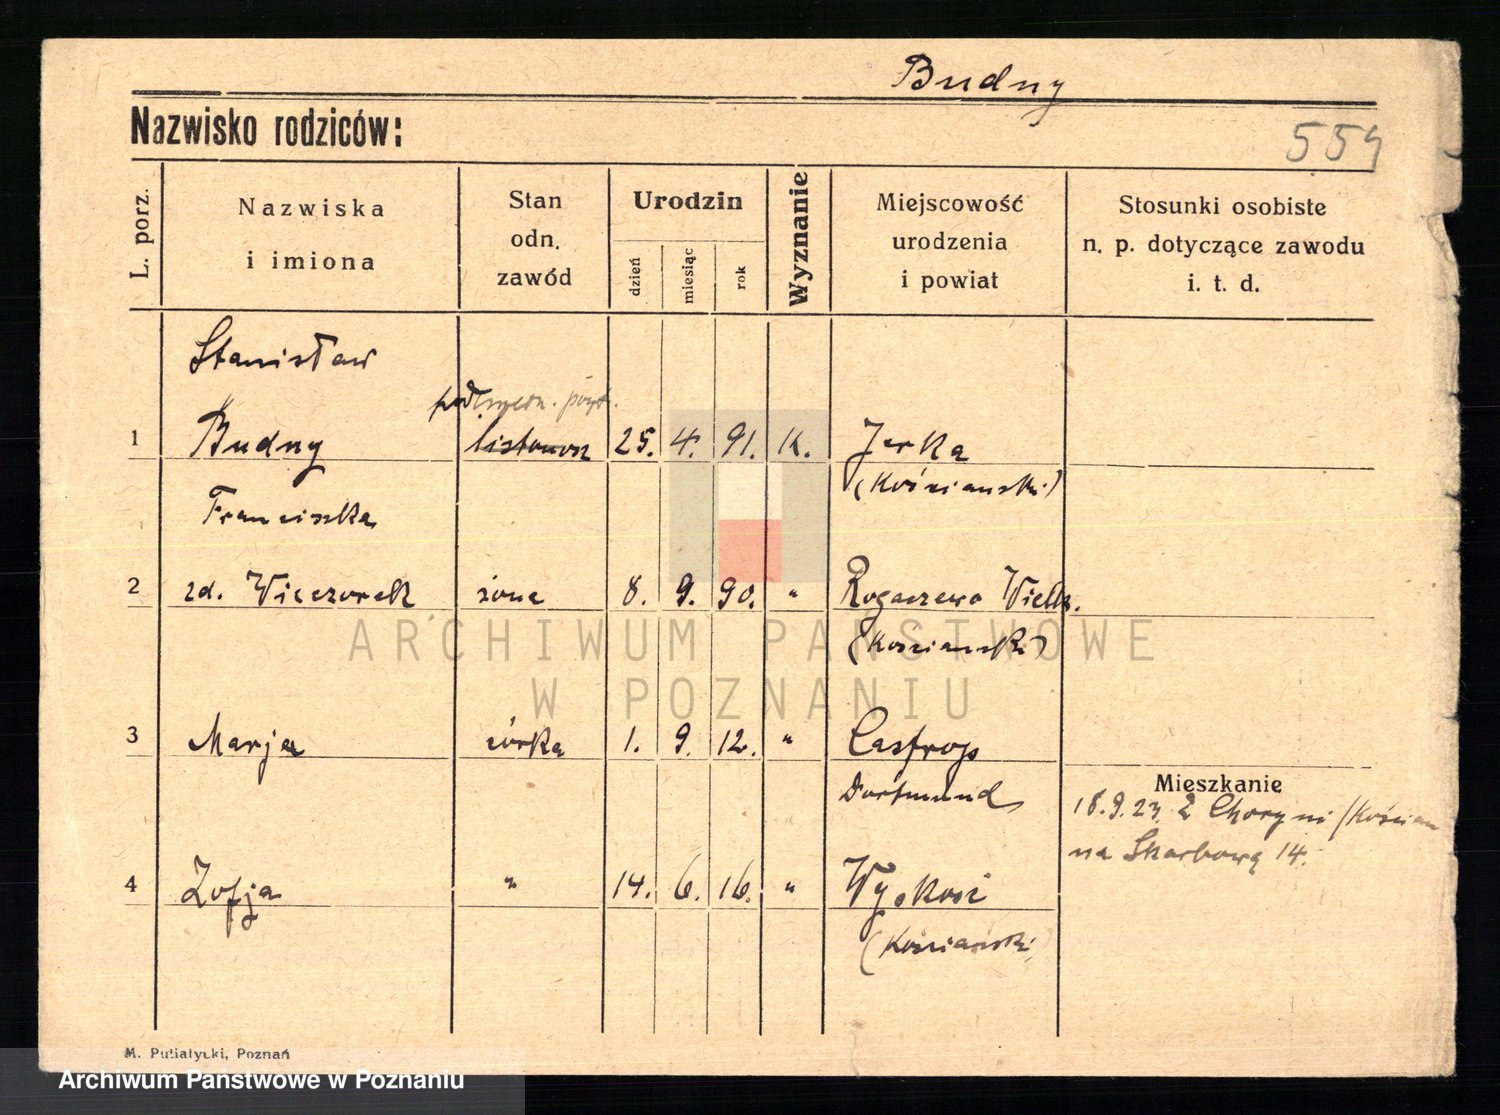 Budny
Nazwisko rodziców:
554
L. porz.
Nazwiska
i imiona
Stan
odn.
zawód
Urodzin
dzień
miesiąc
rok
Wyznanie
Miejscowość
urodzenia
i powiat
Stosunki osobiste
n. p. dotyczące zawodu
i. t. d.
Stanisław
1 Budny listonosz 25. 4. 91. K. Jerka
(Kościański)
Franciszka
2 zd. Wieczorek żona 8. 9. 90. " Rogaczewo Wielk.
(Kościański)
3 Marja córka 1. 9. 12. " Castrop
Dortmund
Mieszkanie
18.9.23. Z Choryni (Kościan
na Skarbową 14.
4 Zofja " 14. 6. 16. " Wyskoć
(Kościański)
M. Putiatycki, Poznań
ARCHIWUM PAŃSTWOWE
W POZNANIU
Archiwum Państwowe w Poznaniu